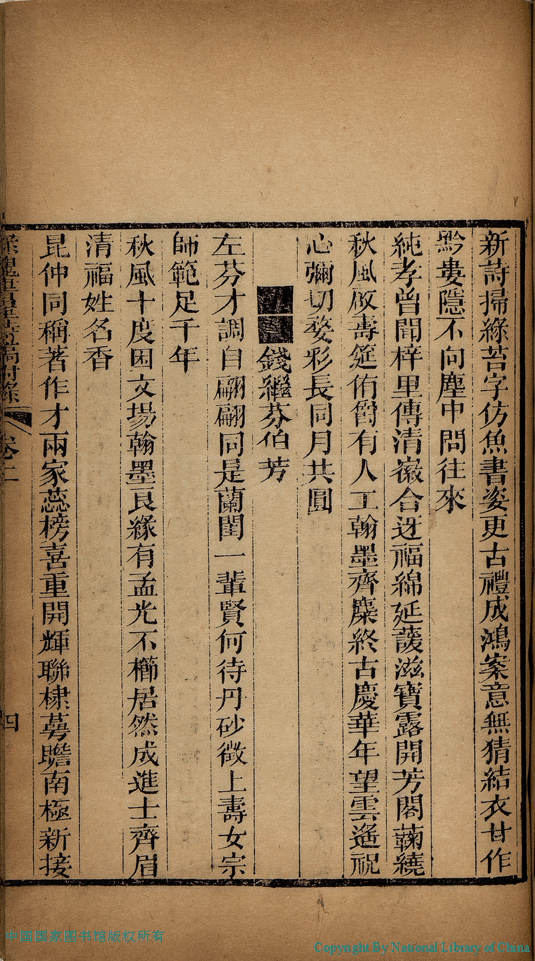 新詩掃綠苔字仿魚書姿更古禮成鴻案意無猜結衣甘作
黔婁隱不向塵中問往來
純孝曾聞梓里傳清徽合迓福綿延蘐滋寶露開芳閣蘜繞
秋風啟壽筵侑爵有人工翰墨齊麋終古慶華年望雲遙祝
心彌切婺彩長同月共圓
錢繼芬伯芳
左芬才調自翩翩同是蘭閨一輩賢何待丹砂徵上壽女宗
師範足千年
秋風十度困文場翰墨良緣有孟光不櫛居然成進士齊眉
清福姓名香
昆仲同稱著作才兩家蕊榜喜重開輝聯棣萼瞻南極新接
卷二
四
中国国家图书馆版权所有
Copyright By National Library of China